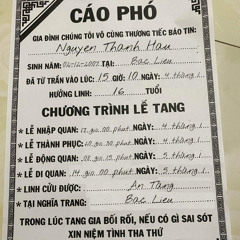 CÁO PHÓ
GIA ĐÌNH CHÚNG TÔI VÔ CÙNG THƯƠNG TIẾC BÁO TIN:
Nguyen Thanh Hau
SINH NĂM: 04-12-2007 TẠI: Bac Lieu
ĐÃ TỪ TRẦN VÀO LÚC: 15 GIỜ: 10 NGÀY: 4 tháng 1
HƯỞNG LINH: 16 TUỔI
CHƯƠNG TRÌNH LỄ TANG
* LỄ NHẬP QUAN: giờ 00 phút NGÀY: 4 tháng 1
* LỄ THÀNH PHỤC: giờ 30 phút NGÀY: 4 tháng 1
* LỄ ĐỘNG QUAN: giờ phút NGÀY: 5 tháng 1
* LỄ DI QUAN: 14 giờ 00 phút NGÀY: 5 tháng 1
* LINH CỬU ĐƯỢC: An Tang
* TẠI NGHĨA TRANG: Bac Lieu
TRONG LÚC TANG GIA BỐI RỐI, NẾU CÓ GÌ SAI SÓT
XIN NIỆM TÌNH THA THỨ